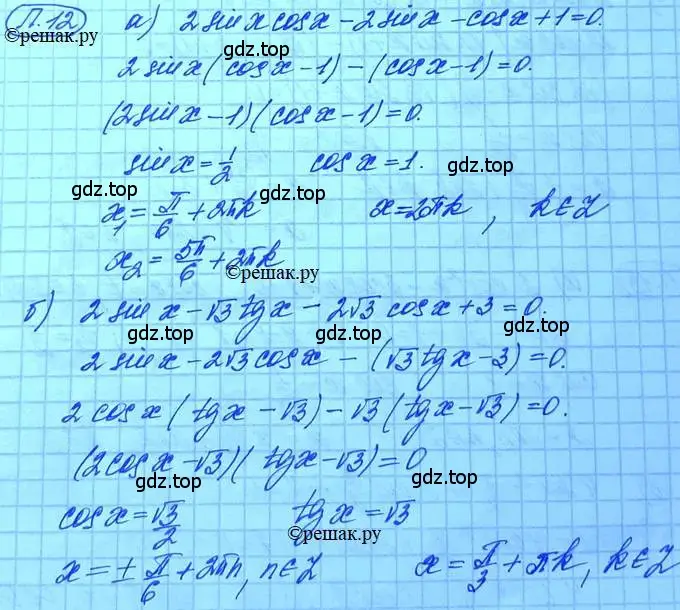 П.12 а) 2 sin x cos x - 2 sin x - cos x + 1 = 0.
©решак.ру
gdz.top
2 sin x (cos x - 1) - (cos x - 1) = 0.
(2 sin x - 1)(cos x - 1) = 0.
sin x = 1/2 cos x = 1.
gdz.top gdz.top
x₁ = π/6 + 2πk x = 2πk, k ∈ Z
gdz.top
x₂ = 5π/6 + 2πk
©решак.ру
б) 2 sin x - √3 tg x - 2√3 cos x + 3 = 0.
gdz.top gdz.top
2 sin x - 2√3 cos x - (√3 tg x - 3) = 0.
gdz.top
2 cos x (tg x - √3) - √3 (tg x - √3) = 0.
(2 cos x - √3)(tg x - √3) = 0
gdz.top gdz.top
cos x = √3/2 tg x = √3
©решак.ру
gdz.top
x = ± π/6 + 2πn, n ∈ Z x = π/3 + πk, k ∈ Z